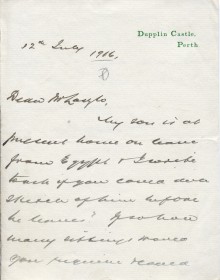 Dupplin Castle,
Perth.
12th July 1916.
Dear Mr
My son is at
present home on leave
from Egypt & I write
to ask if you could do a
sketch of him before
he leaves? If so how
many sittings would
you require &